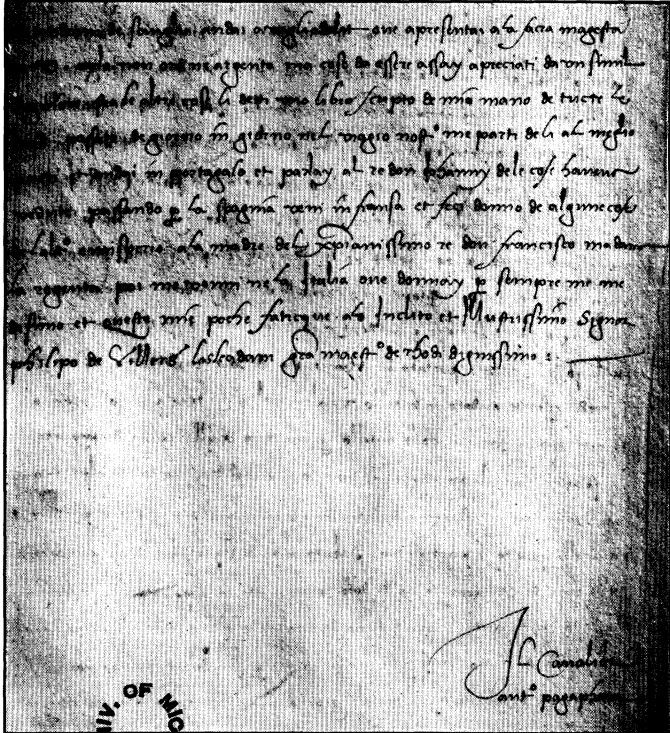 de siviglia andai a vagliadolit oue apresentai a la sacra magesta
non oro ne argento ma cose da essere assay apreciati da un simil
altre cose li detti uno libro scripto de mia mano de tucte le
passate de giorno in giorno nel viagio nost° me parti de li al meglio
in portagalo et parlay al re don Johanni de le cose haueua
passando p la spagnia veni in fransa et feci donno de algune cose
a la madre del xpianissimo re don francisco mada
la regenta poi me venni ne la Italia oue donnay p sempre me me
desimo et queste mie poche faticque alo Inclito et Illustrissimo Signor
philipo de Villers lisleadam gra maest° de rhodi dignissimo :
Il Caualier
ant° pagaphetta
UNIV. OF MIC